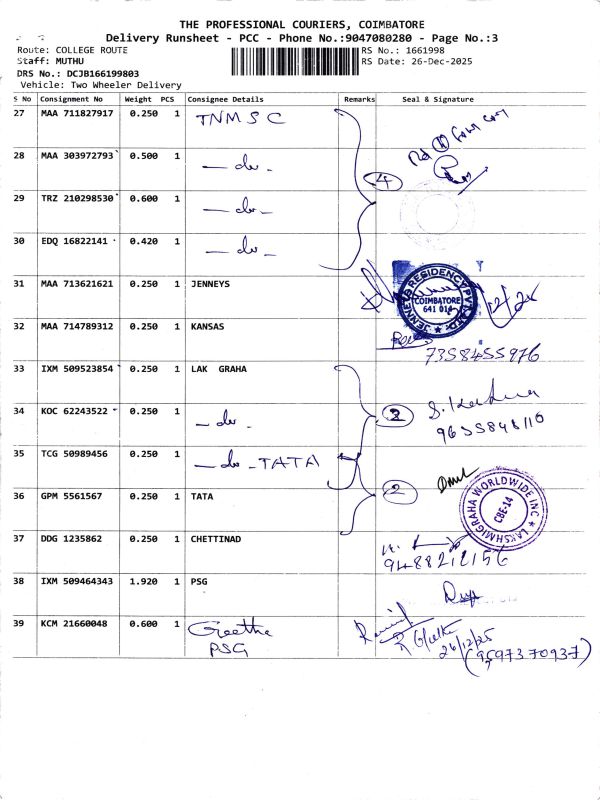 THE PROFESSIONAL COURIERS, COIMBATORE
Delivery Runsheet - PCC - Phone No.:9047080280 - Page No.:3
Route: COLLEGE ROUTE RS No.: 1661998
Staff: MUTHU RS Date: 26-Dec-2025
DRS No.: DCJB166199803
Vehicle: Two Wheeler Delivery
S No Consignment No Weight PCS Consignee Details Remarks Seal & Signature
27 MAA 711827917 0.250 1 TNMSC
28 MAA 303972793 0.500 1 — do -
29 TRZ 210298530 0.600 1 — do - 4
30 EDQ 16822141 0.420 1 — do -
31 MAA 713621621 0.250 1 JENNEYS
JENNEYS RESIDENCY PVT LTD COIMBATORE 641 014
32 MAA 714789312 0.250 1 KANSAS
7358455976
33 IXM 509523854 0.250 1 LAK GRAHA
34 KOC 62243522 0.250 1 — do - 2
9655848110
35 TCG 50989456 0.250 1 — do - TATA
36 GPM 5561567 0.250 1 TATA 2
LAKSHMIGRAHA WORLDWIDE INC CBE-14
37 DDG 1235862 0.250 1 CHETTINAD
9488212156
38 IXM 509464343 1.920 1 PSG
39 KCM 21660048 0.600 1 Geetha
PSG
26/12/25
(9597370937)